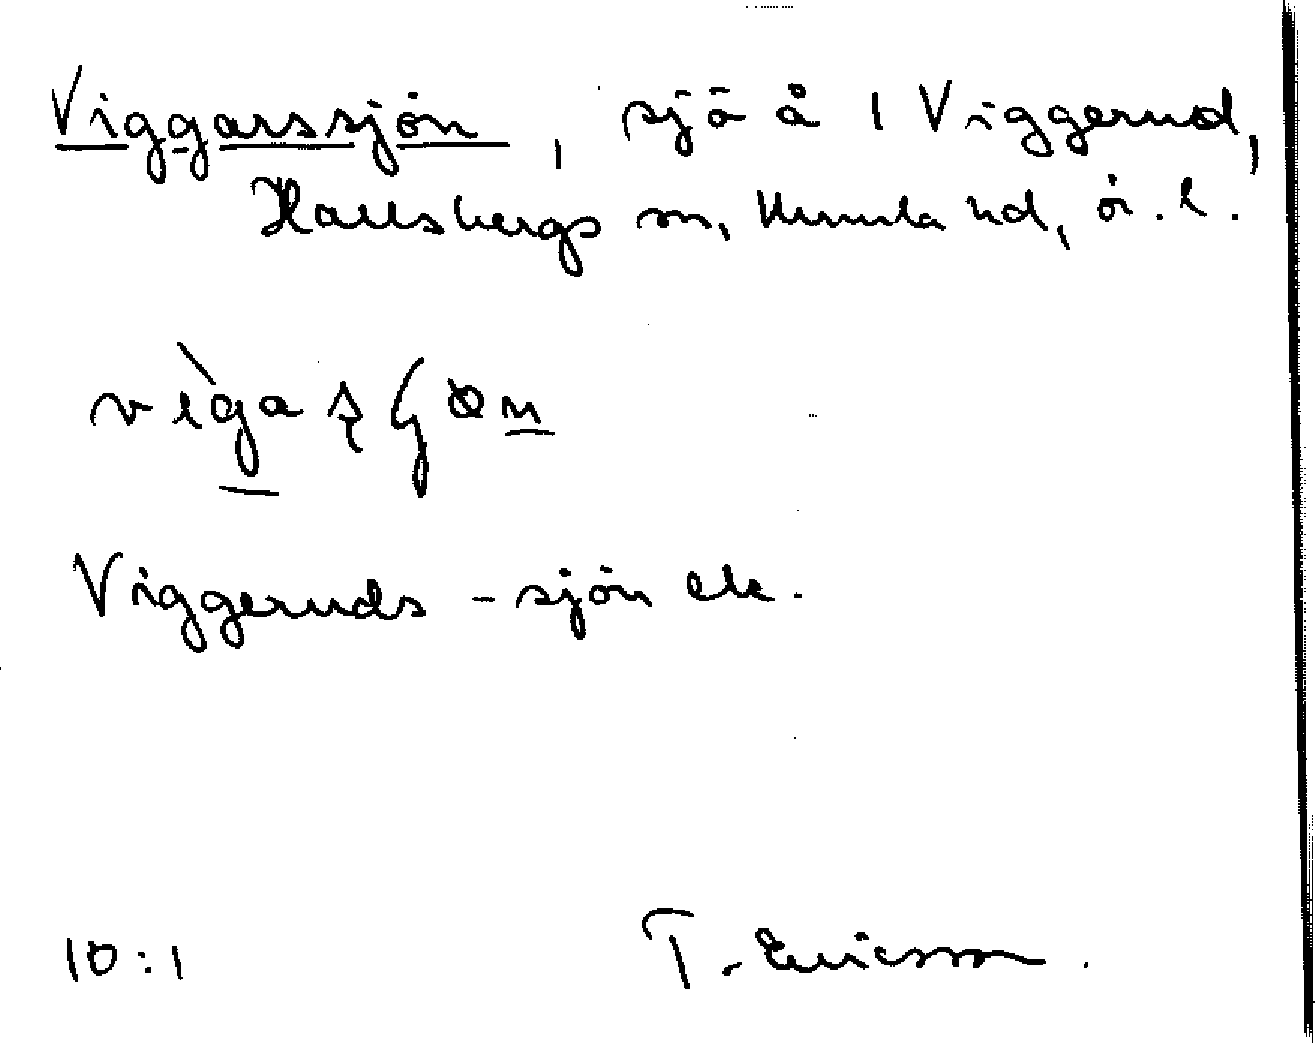 Viggarssjön, sjö å 1 Viggerud,
Hallsbergs sn, Kumla hd, ör. l.
Viggeruds-sjön ek.
10:1 T. Ericsson.